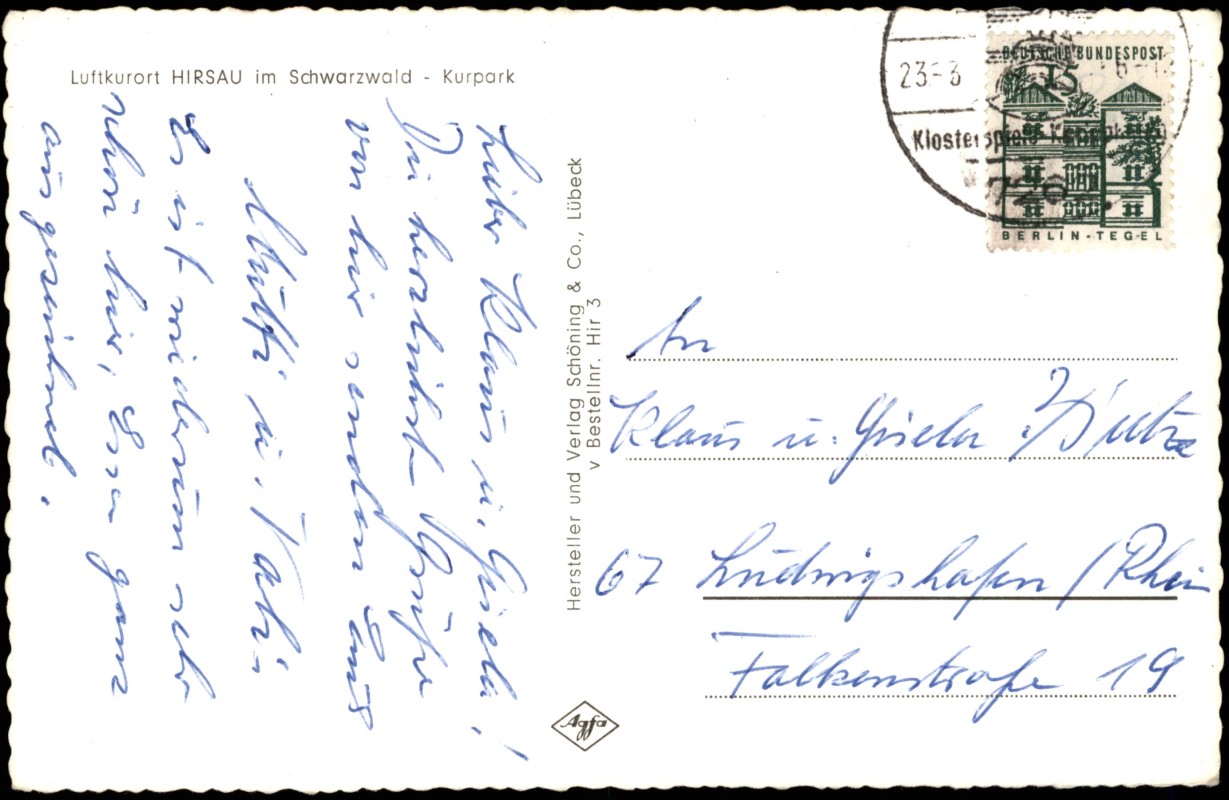 Luftkurort HIRSAU im Schwarzwald - Kurpark
Lieber Klaus u. Gisela!
Die herzlichst Grüße
von hier senden Euch
Mutti u. Vati
Es ist wiederum sehr
schön hier, Essen ganz
ausgezeichnet.
Hersteller und Verlag Schöning & Co., Lübeck
v Bestellnr. Hir 3
Agfa
23.-3
Klosterspiele
DEUTSCHE BUNDESPOST
15
BERLIN-TEGEL
An
Klaus u. Gisela
67 Ludwigshafen/Rhein
Falkenstraße 19